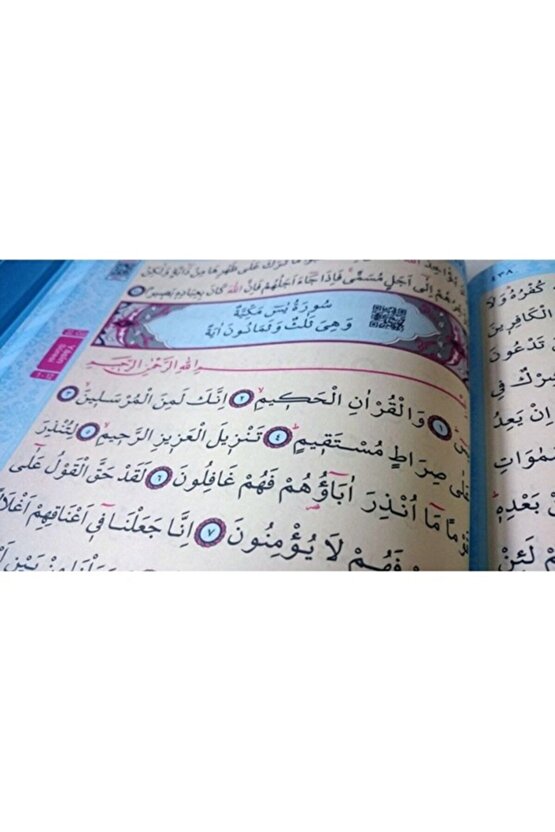 هُمْ إِلَى أَجَلٍ مُسَمًّى فَإِذَا جَاءَ أَجَلُهُمْ فَإِنَّ اللهَ كَانَ بِعِبَادِهِ بَصِيرًا
سُورَةُ يٰسٓ مَكِّيَّةٌ
وَهِيَ ثَلَثٌ وَثَمَانُونَ اٰيَةً
اللهِ الرَّحْمٰنِ الرَّحِيمِ
يٰسٓ ١ وَالْقُرْاٰنِ الْحَكِيمِ ٢ اِنَّكَ لَمِنَ الْمُرْسَلِينَ ٣
عَلٰى صِرَاطٍ مُسْتَقِيمٍ ٤ تَنْزِيلَ الْعَزِيزِ الرَّحِيمِ ٥ لِتُنْذِرَ
قَوْمًا مَٓا اُنْذِرَ اٰبَٓاؤُ۬هُمْ فَهُمْ غَافِلُونَ ٦ لَقَدْ حَقَّ الْقَوْلُ عَلٰٓى
فَهُمْ لَا يُؤْمِنُونَ ٧ اِنَّا جَعَلْنَا فِٓي اَعْنَاقِهِمْ اَغْلَالًا
٤٣٨
كُفْرُهُ وَلَا
الْكَافِرِينَ
تَدْعُونَ
شِرْكٌ فِي
اِنْ يَعِدُ
بَعْدِهِ
لَئِنْ